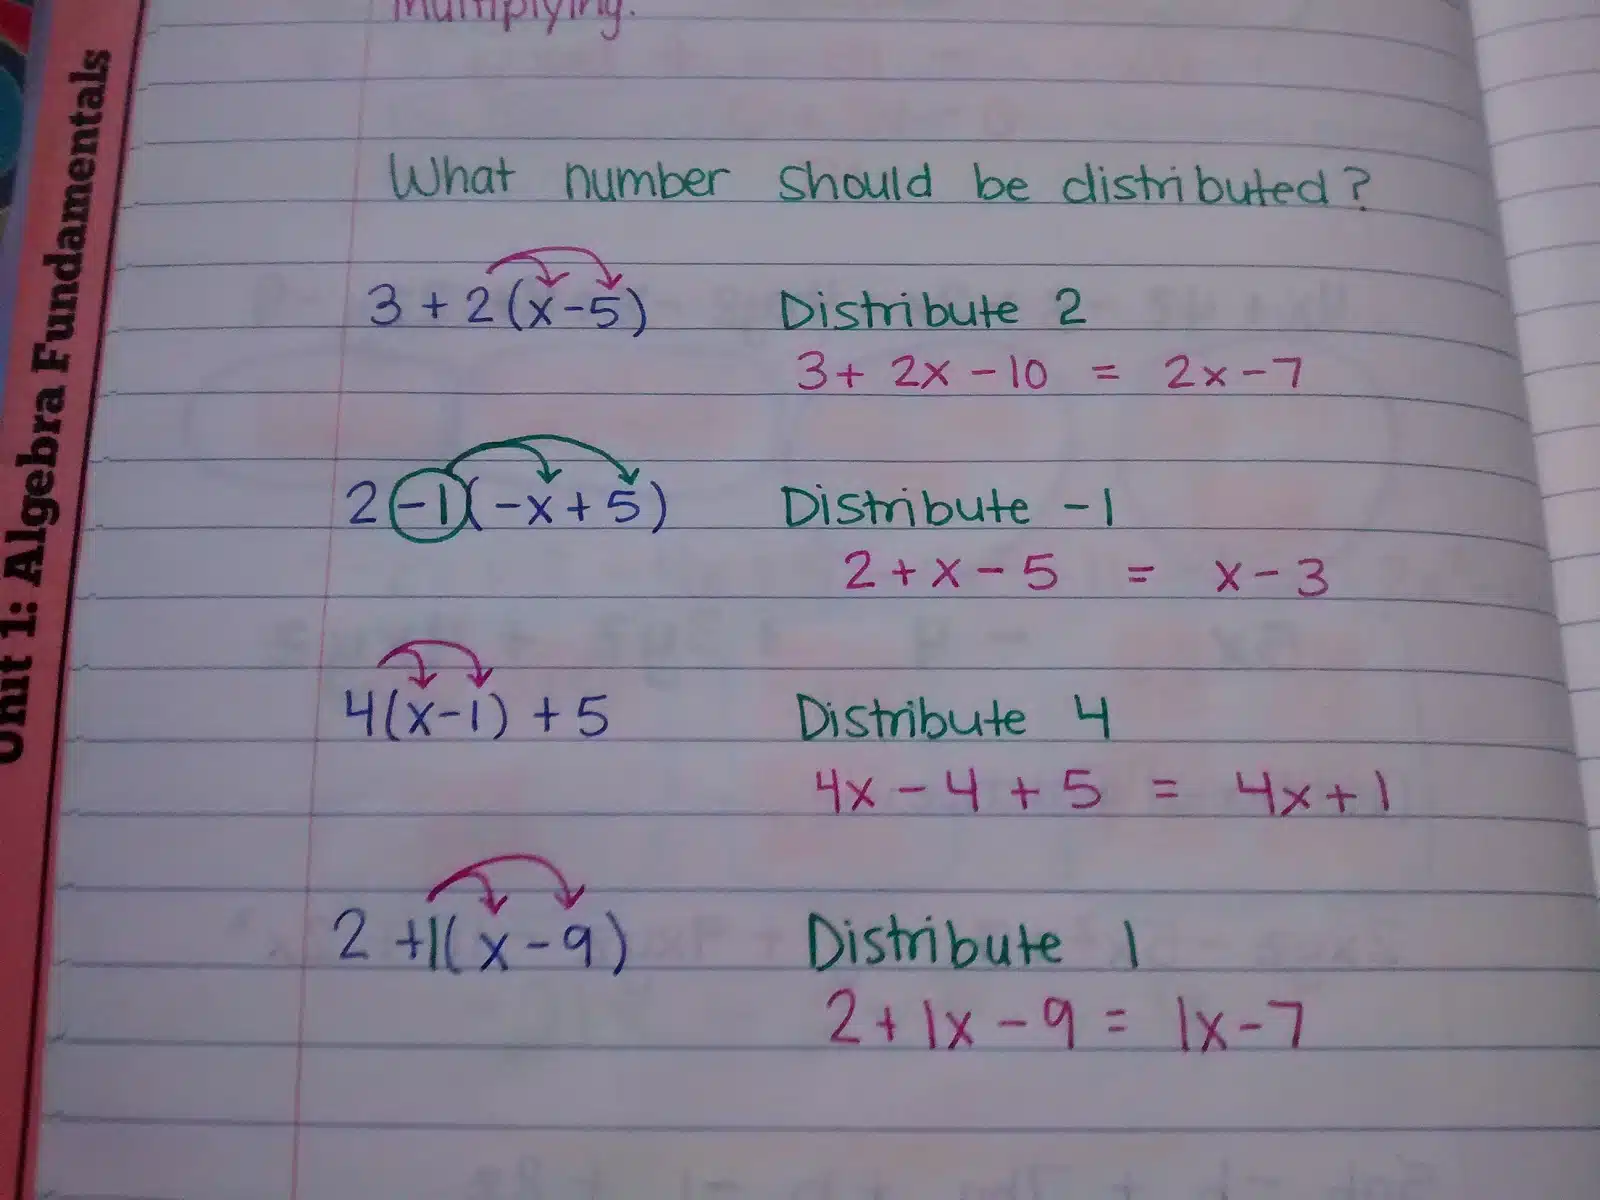 Multiplying.
Unit 1: Algebra Fundamentals
What number should be distributed?
3 + 2(x-5) Distribute 2
3 + 2x - 10 = 2x - 7
2 -1(-x + 5) Distribute -1
2 + x - 5 = x - 3
4(x-1) + 5 Distribute 4
4x - 4 + 5 = 4x + 1
2 +1(x - 9) Distribute 1
2 + 1x - 9 = 1x - 7